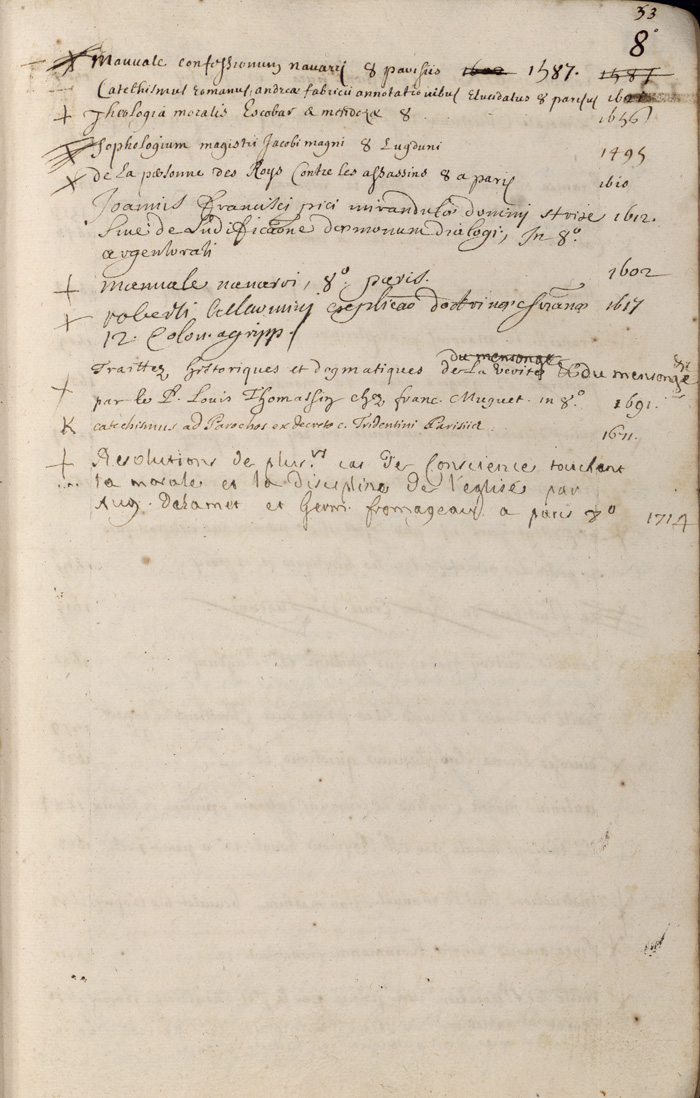 53
8°
Manuale confessionum navarri 8 parisiis 1602 1587. 1587
Catechismus romanus, andreæ fabricii annotationibus Elucidatus 8 parisiis
+ Theologia moralis Escobar a mendoza 8 1656
Sophologium magistri Jacobi magni 8 Lugduni 1495
x de La personne des Roys Contre les assassins 8 a paris 1610
Joannis francisci pici mirandulæ domini strixe 1612.
sive de Ludificatione dæmonum dialogi, In 8°.
argentorati
+ manuale navarri, 8° paris. 1602
+ roberti Bellarmini explicao doctrinæ chranæ 1617
12. Colon. agripp.
du mensonge
Traittez historiques et dogmatiques de La Verité & du mensonge
+ par le P. Louis Thomassin chez franc. Muguet. in 8°. 1691.
x catechismus ad Parochos ex decreto c. Tridentini Parisiis. 1671.
+ Resolutions de plus.rs cas de Conscience touchant
la morale et la discipline de l'eglise par
Aug. Delamet et Germ. fromageau a paris 8° 1714